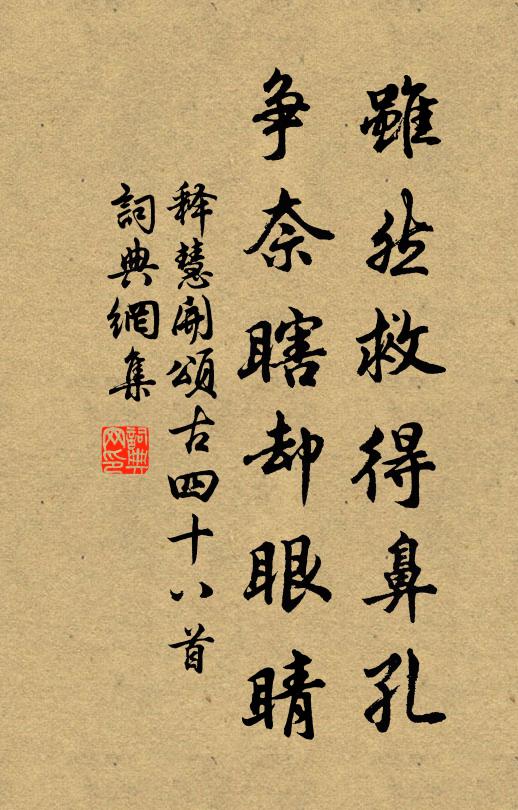 雖然救得鼻孔
争奈瞎却眼睛
释慧開頌古四十八首
詞典網集
詞典網印